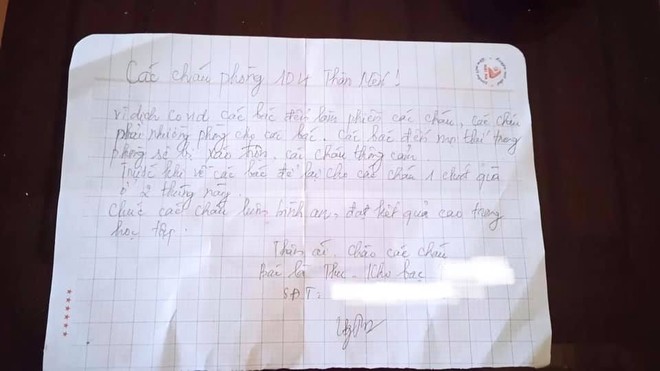 Các cháu phòng 104 Thân Mến!
Vì dịch covid các bác đến làm phiền các cháu. các cháu
phải nhường phòng cho các bác. Các bác đến mọi thứ trong
phòng sẽ bị xáo trộn. các cháu thông cảm
Trước khi về các bác để lại cho các cháu 1 chút quà
ở 2 thùng này.
Chúc các cháu luôn bình an. đạt kết quả cao trong
học tập.
Thân ái. chào các cháu
Bác là Thu. Khu bạc
SĐT: